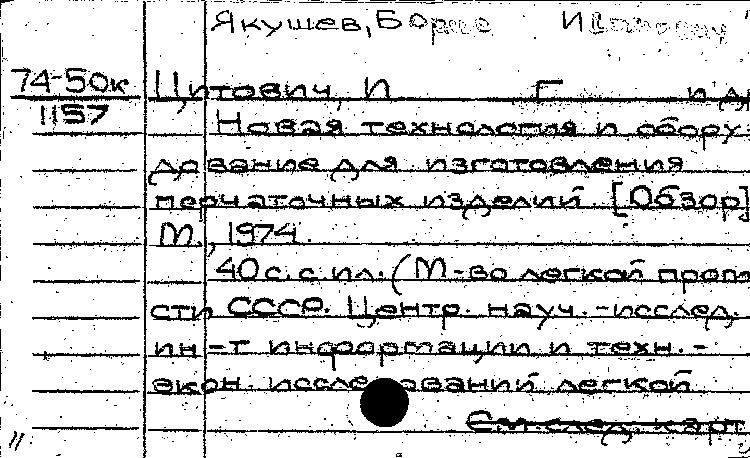 Якушев, Борис Иванович
74-50к
1157
Цитович, И Г и др
Новая технология и обору-
дование для изготовления
перчаточных изделий. [Обзор]
М., 1974.
40 с. с ил. (М-во легкой пром
сти СССР. Центр. науч.-исслед.
ин-т информации и техн.-
экон. исследований легкой
См. след. карт